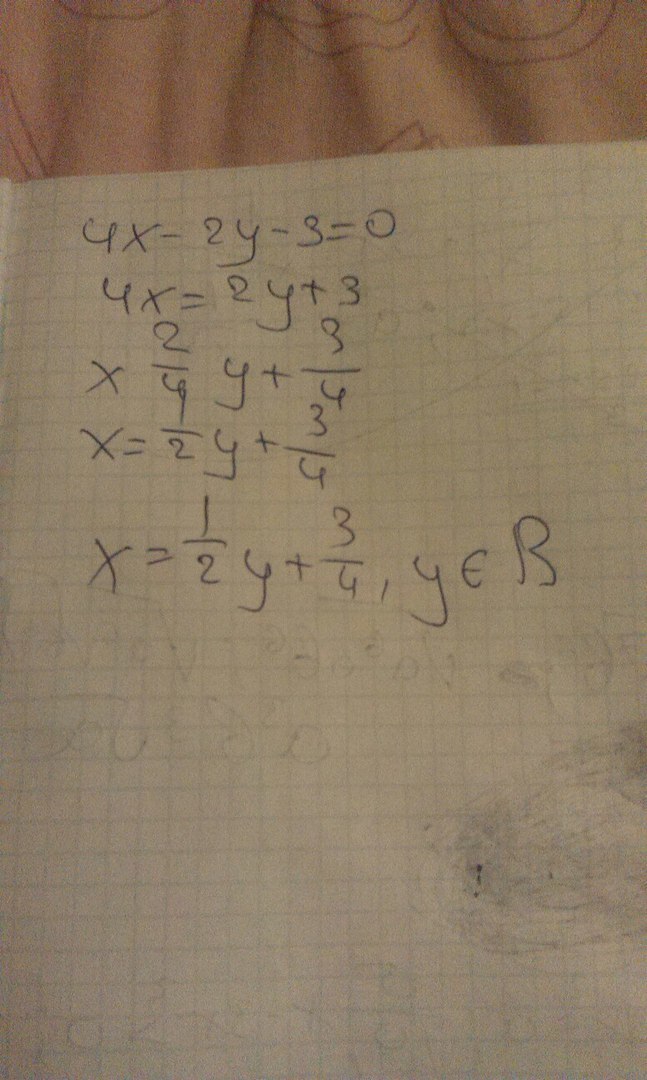 4x - 2y - 3 = 0
4x = 2y + 3
x 2/4 y + 3/4
x = 1/2 y + 3/4
x = 1/2 y + 3/4, y ∈ B